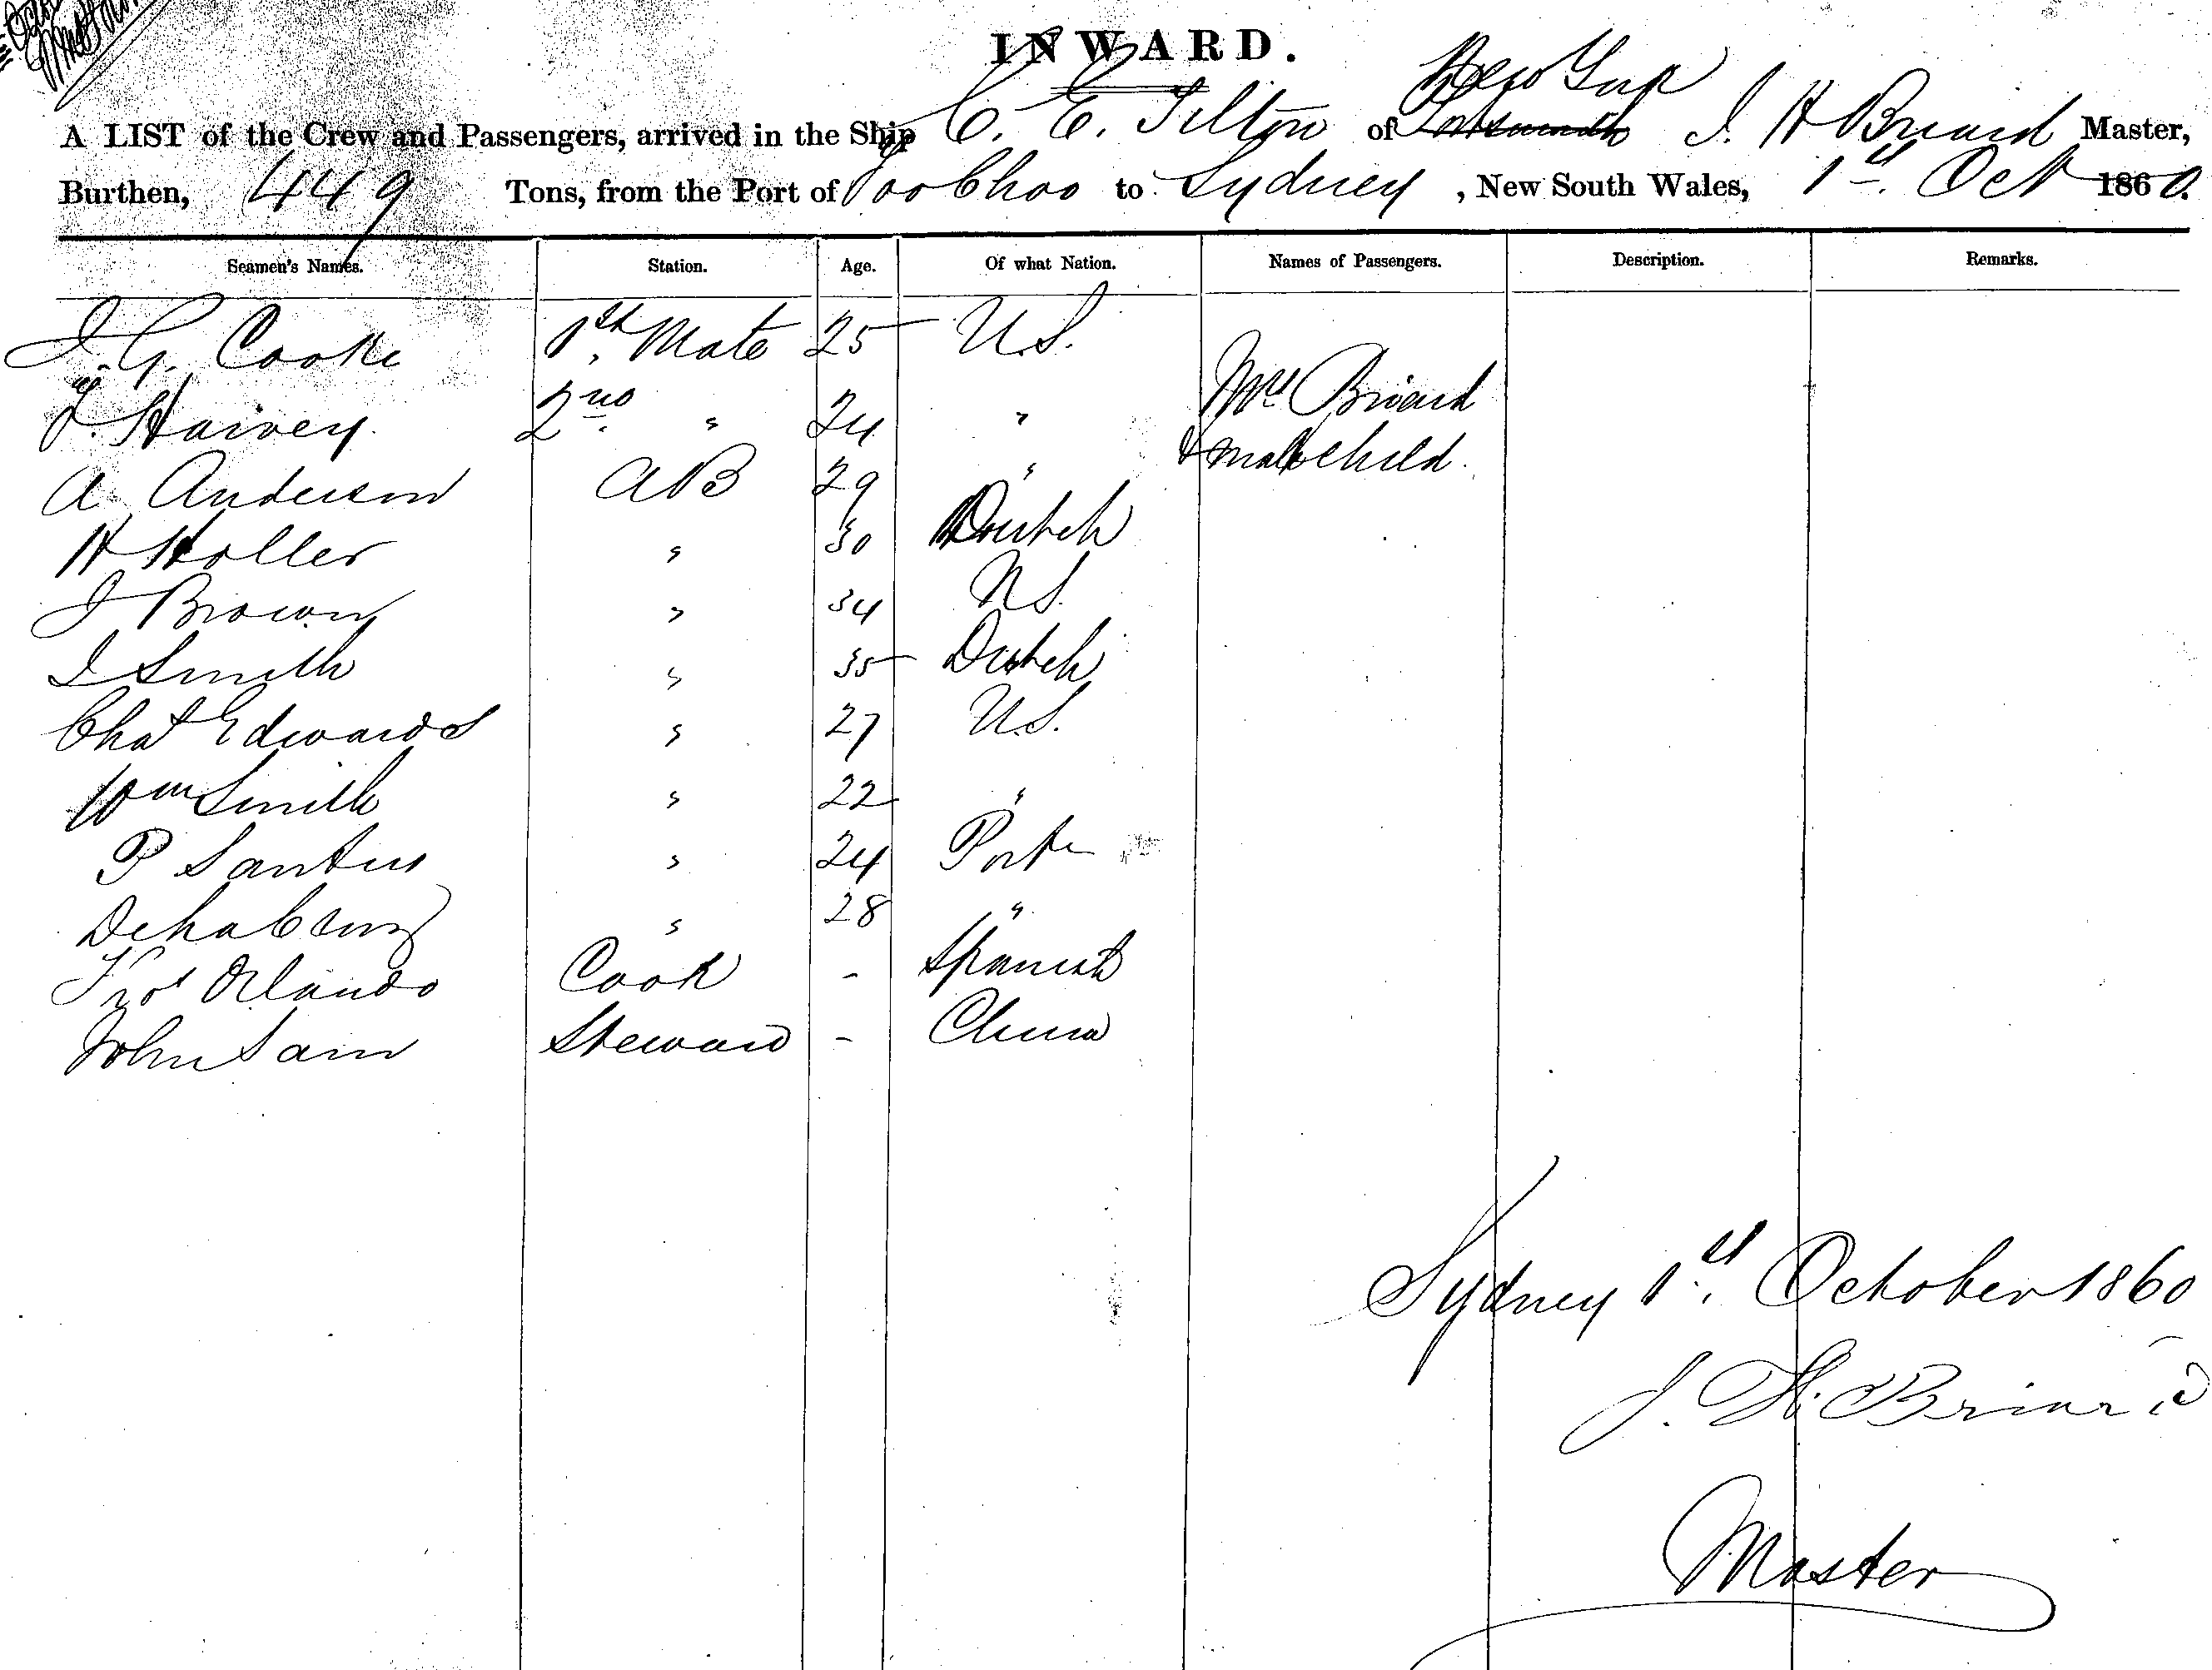 INWARD.
New York
A LIST of the Crew and Passengers, arrived in the Ship C. E. Tilton of Portsmouth J. H Briard Master,
Burthen, 449 Tons, from the Port of Foo Choo to Sydney, New South Wales, 1st Oct 1860.
Seamen's Names. Station. Age. Of what Nation. Names of Passengers. Description. Remarks.
J. G. Cooke 1st Mate 25 U.S.
Mrs Briard
F. Harvey. 2nd " 24 "
& male Child.
A. Anderson AB 29 "
H Holler " 30 Dutch
J Brown " 34 U.S.
J Smith " 35 Dutch
Chas Edwards " 27 U.S.
Wm Smith " 22 "
P Santus " 24
" 28 "
Orlando Cook - Spanish
John Sam Steward - China
Sydney 1st October 1860
J. H. Briard
Master